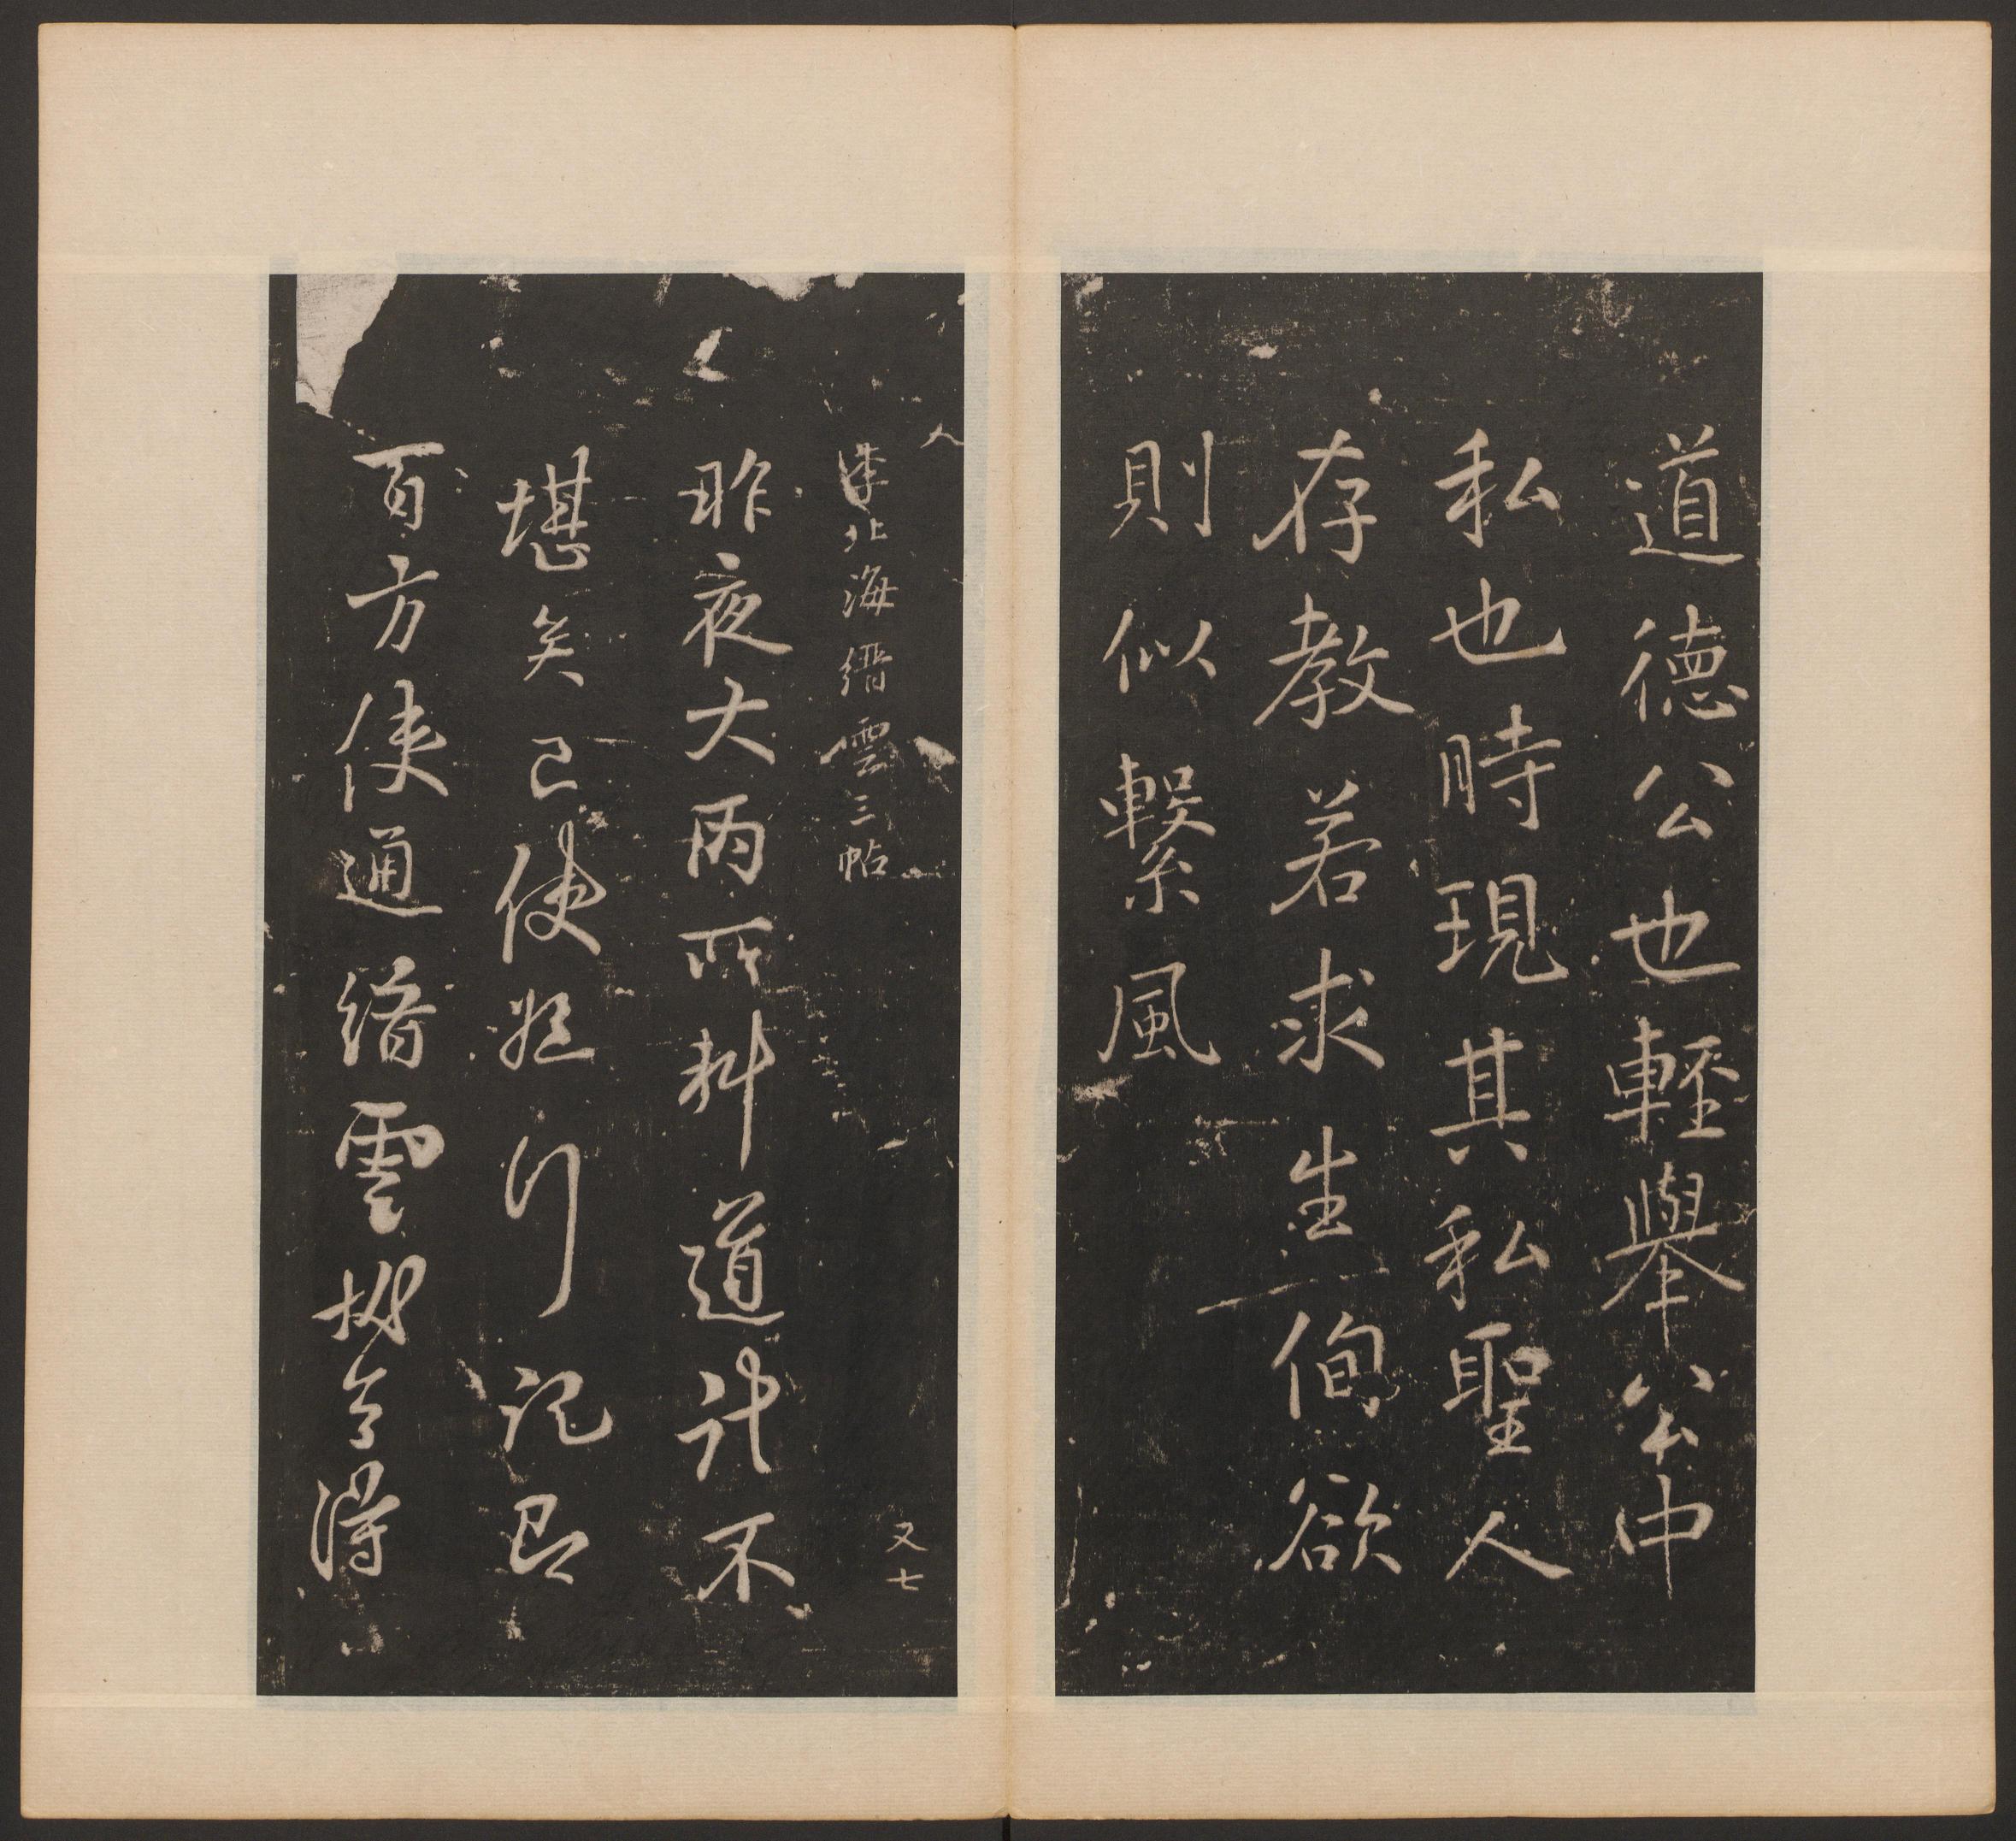 道德公也輕舉公中
私也時現其私聖人
存教若求生徇欲
則似繫風
人
李北海縉雲三帖
又七
昨夜大雨所料道計不
堪矣已使
行記即
百方使通縉雲
今得